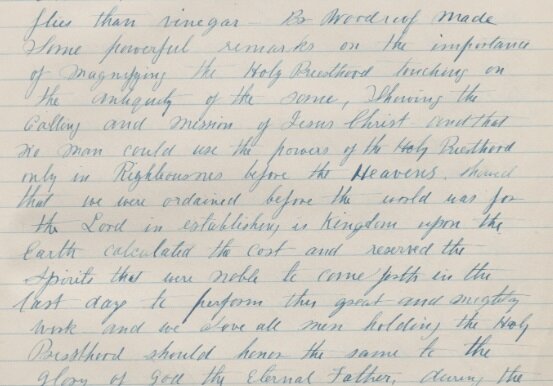 flies than vinegar — Br Woodruf made
Some powerful remarks on the importance
of magnifying the Holy Priesthood touching on
the antiquity of the same, Shewing the
Calling and mission of Jesus Christ and that
no man could use the powers of the Holy Priesthood
only in Righteousnes before the Heavens, shewed
that we were ordained before the world was for
the Lord in establishing is Kingdom upon the
Earth calculated the cost and reserved the
Spirits that were noble to come forth in the
last day to perform this great and mighty
work and we above all men holding the Holy
Priesthood should honor the same to the
glory of God the Eternal Father, during the